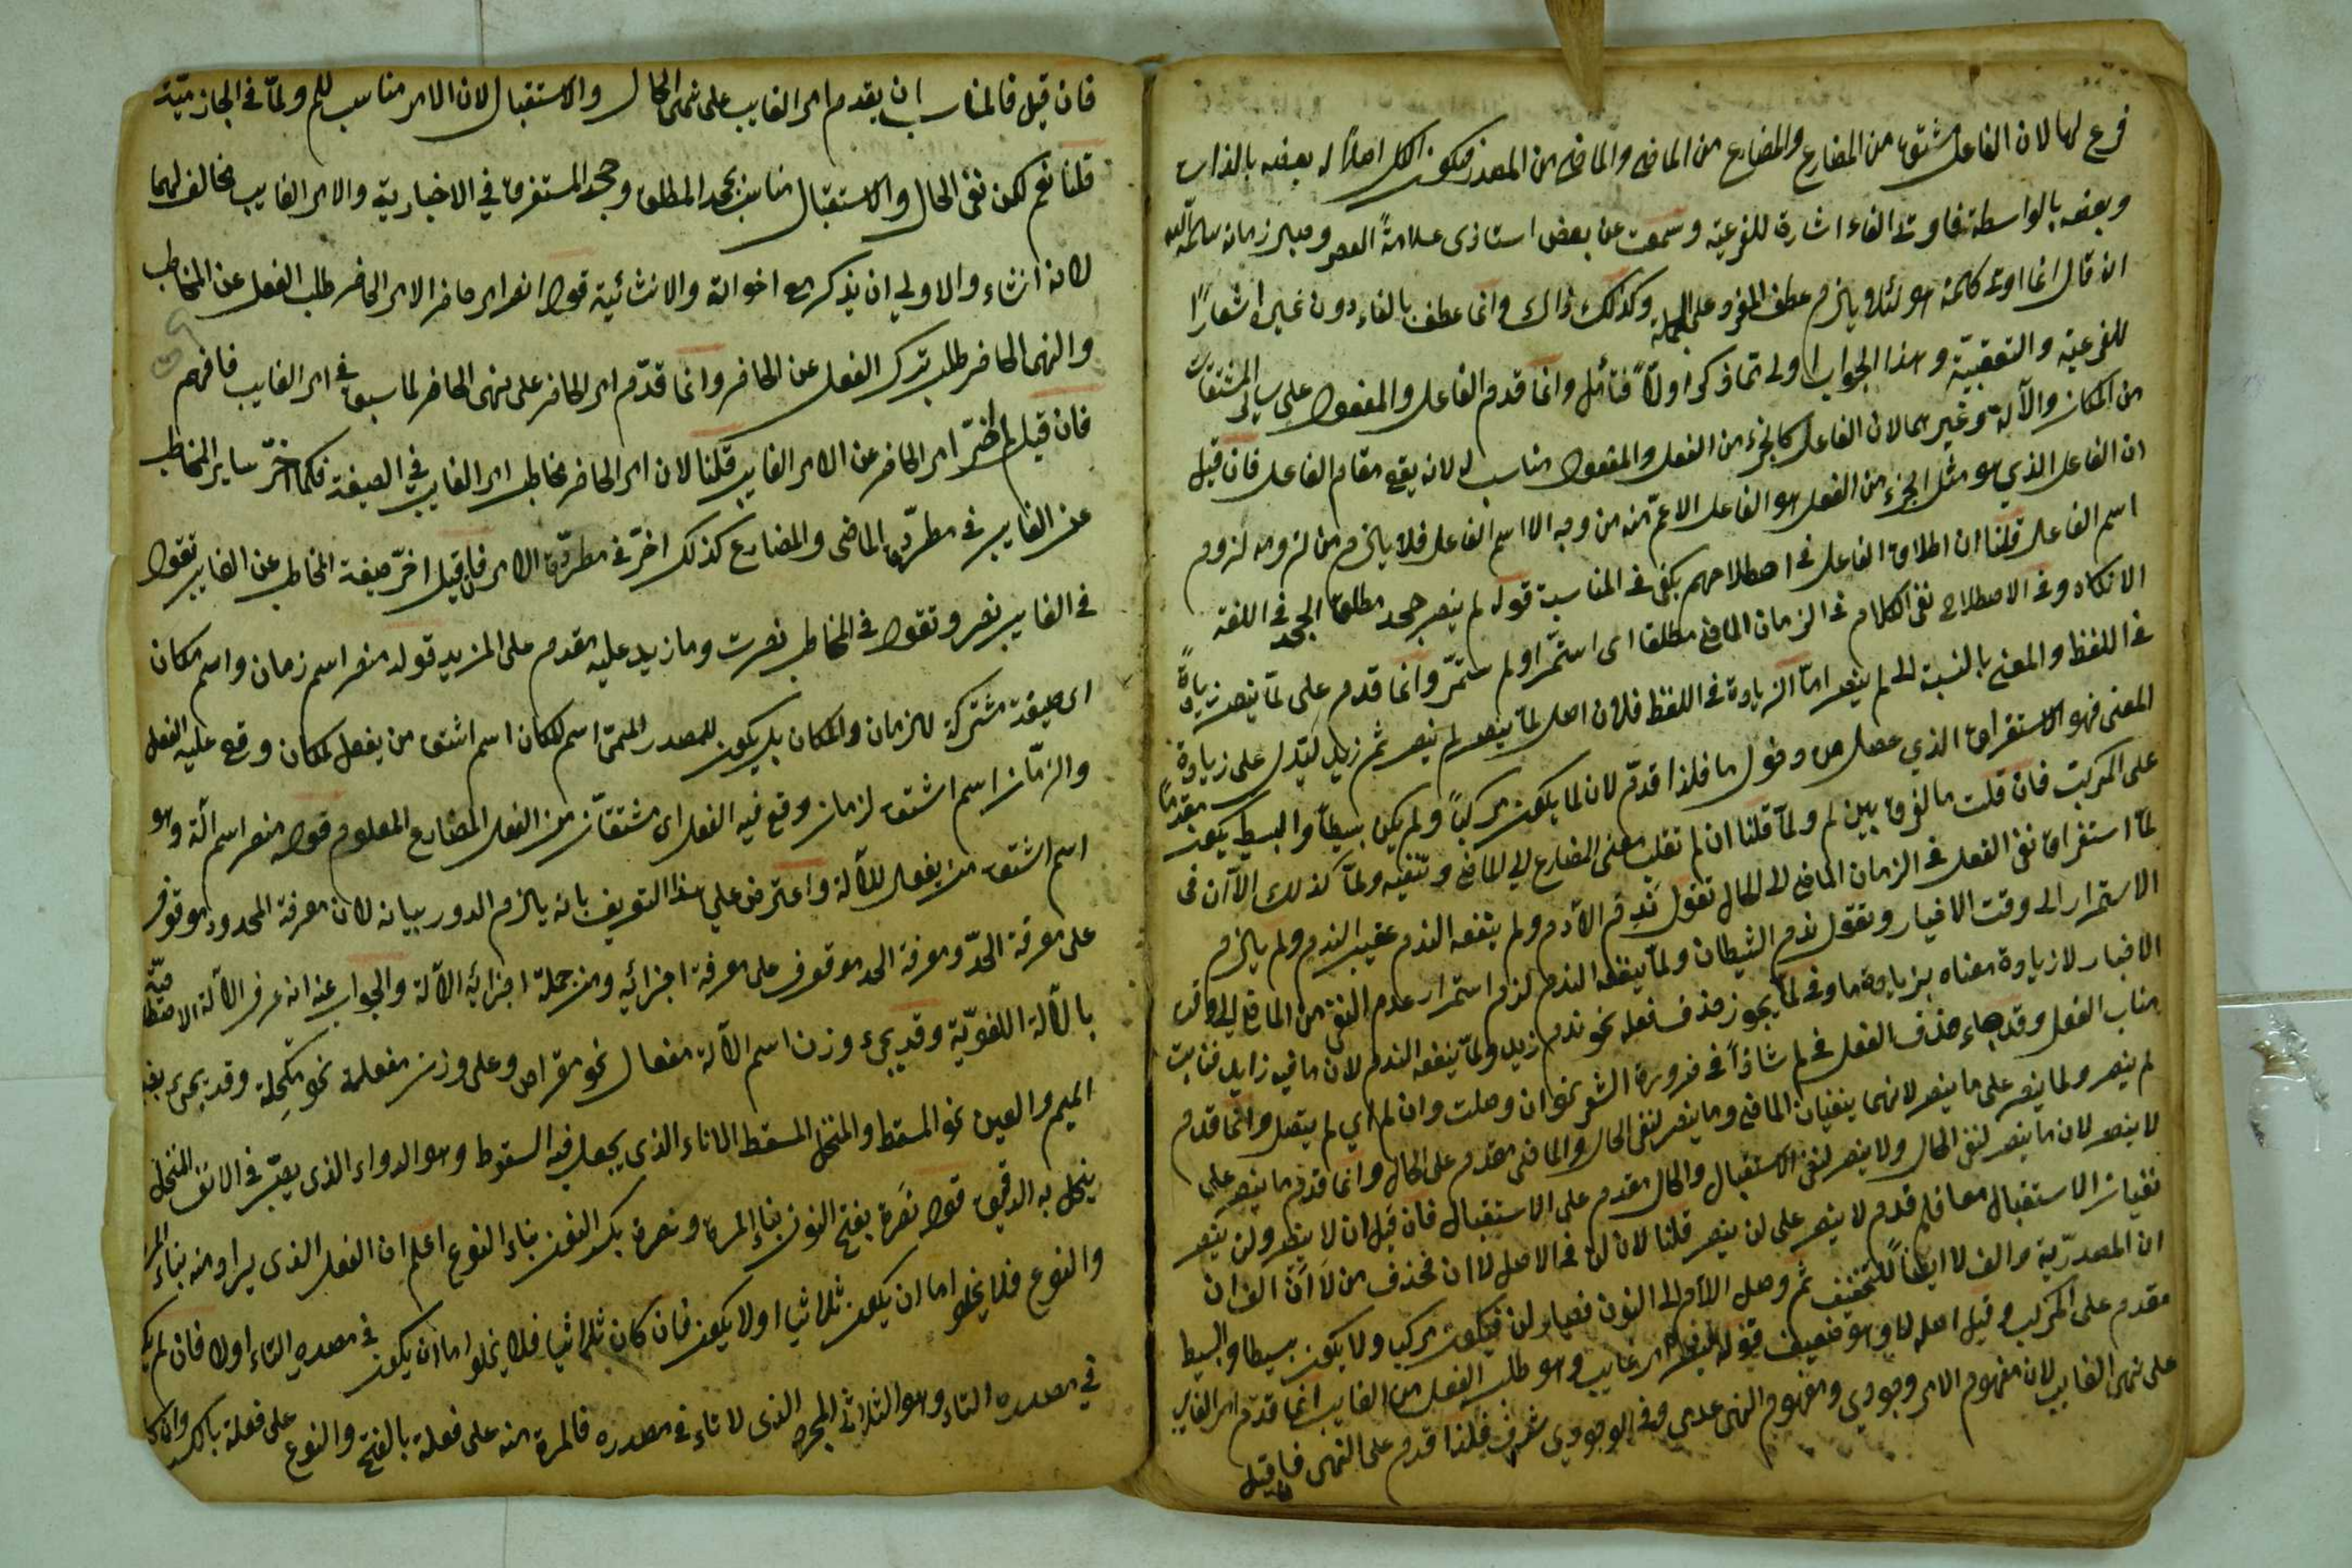 فرع لها لان الفاعل مشتق من المضارع والمضارع من الماضي والماضي من المصدر فيكون الكل اصلا له بعضه بالذات
وبعضه بالواسطة فاوتى الفاء اشارة للفرعية وسمعت عن بعض استاذى علامة العصر وحبر زمانه سلمه الله
انه قال انما اوتى كلمة هو لئلا يلزم عطف المفرد على الجملة وكذلك ذاك وانما عطف بالفاء دون غيره اشعارًا
للفرعية والتعقبية وهذا الجواب اولى مما ذكر اولًا فتأمل وانما قدم الفاعل والمفعول على سائر المشتقات
من المكان والآلة وغيرهما لان الفاعل كالجزء من الفعل والمفعول مناسب له لانه يقع مقام الفاعل فان قيل
ان الفاعل الذي هو مثل الجزء من الفعل هو الفاعل الاعم منه من وجه الا اسم الفاعل فلا يلزم من لزومه لزوم
اسم الفاعل قلنا ان اطلاق الفاعل في اصطلاحهم يكفى في المناسبة قوله لم ينصر جحد مطلق الجحد في اللغة
الانكار وفي الاصطلاح نفى الكلام في الزمان الماضي مطلقا اى استمر او لم يستمر وانما قدم على لمّا ينصر لزيادة
في اللفظ والمعنى بالنسبة الى لم ينصر امّا الزيادة في اللفظ فلان اصل لمّا ينصر لم ينصر ثم زيد ليدل على زيادة
المعنى فهو الاستغراق الذي حصل من دخول ما فلذا قدم لان لما يكون مركبًا ولم يكن بسيطًا والبسيط يكون مقدمًا
على المركب فان قلت ما الفرق بين لم ولمّا قلنا ان لم تقلب معنى المضارع الى الماضي وتنفيه ولمّا كذلك الا ان في
لمّا استغراق نفى الفعل في الزمان الماضي الى الحال تقول ندم الآدم ولم ينفعه الندم عقيب الندم ولم يلزم
الاستمرار الى وقت الاخبار وتقول ندم الشيطان ولمّا ينفعه الندم لزم استمرار عدم النفع من الماضي الى وقت
الاخبار لازيادة معناه بزيادة ما وفي لمّا يجوز حذف فعله نحو ندم زيد ولمّا ينفعه الندم لان ما فيه زايد فنابت
مناب الفعل وقد جاء حذف الفعل في لم شاذًا في ضرورة الشعر نحو ان وصلت وان لم اي لم يتصل وانما قدم
لم ينصر ولما ينصر على ما ينصر لانهما ينفيان الماضي وما ينصر لنفى الحال والماضي مقدم على الحال وانما قدم ما ينصر على
لا ينصر لان ما ينصر لنفى الحال ولا ينصر لنفى الاستقبال والحال مقدم على الاستقبال فان قيل ان لا ينصر ولن ينصر
نفيان الاستقبال معا فلم قدم لا ينصر على لن ينصر قلنا لان لن في الاصل لا ان فحذف من لا ان الف ان
ان المصدرية والف لا ايضا للتخفيف ثم وصل اللام الى النون فصار لن فيكون مركبا ولا يكون بسيطا والبسيط
مقدم على المركب وقيل اصله لا وهو ضعيف قوله لينصر امر غايب وهو طلب الفعل من الغايب انما قدم امر الغايب
على نهى الغايب لان مفهوم الامر وجودي ومفهوم النهى عدمي وفي الوجودي شرف فلذا قدم على النهى فان قيل
فان قيل فالمناسب ان يقدم امر الغايب على نفى الحال والاستقبال لان الامر مناسب للم ولمّا في الجازمية
قلنا نعم لكن نفى الحال والاستقبال مناسب بجحد المطلق وجحد المستغرق في الاخبارية والامر الغايب مخالف لهما
لانه انشاء والاولى ان يذكر مع اخواته والانشائية قوله انصر امر حاضر الامر الحاضر طلب الفعل عن المخاطب
والنهى الحاضر طلب ترك الفعل عن الحاضر وانما قدّم امر الحاضر على نهى الحاضر لما سبق في امر الغايب فافهم
فان قيل لم اخّر امر الحاضر عن الامر الغايب قلنا لان امر الحاضر مخاطب امر الغايب في الصيغة فكما اخّر ساير المخاطب
عن الغايب في مطرّد الماضى والمضارع كذلك اخّر في مطرّد الامر فان قيل اخّر صيغة المخاطب عن الغايب تقول
في الغايب نصر وتقول في المخاطب نصرت وما زيد عليه مقدم على المزيد قوله منصر اسم زمان واسم مكان
اى صيغة مشتركة للزمان والمكان بل يكون للمصدر الميمى اسم المكان اسم اشتق من يفعل لمكان وقع عليه الفعل
والزمان اسم اشتق لزمان وقع فيه الفعل اى مشتقان من الفعل المضارع المعلوم قوله منصر اسم آلة وهو
اسم اشتق من يفعل للآلة واعترض على هذا التعريف بانه يلزم الدور بيانه لان معرفة المحدود موقوف
على معرفة الحدّ ومعرفة الحد موقوف على معرفة اجزائه ومن جملة اجزائه الآلة والجواب عنه انه عرف الآلة الاصطلاحية
بالآلة اللغويّة وقد يجيء وزن اسم الآلة مفعال نحو مقراض وعلى وزن مفعلة نحو مكحلة وقد يجيء بضم
الميم والعين نحو المسقط والمنخل المسقط الاناء الذى يجعل فيه السقوط وهو الدواء الذى يصبّ في الانف المنخل
ينخل به الدقيق قوله نَصْرة بفتح النون بناء المرة ونصرة بكسر النون بناء النوع اعلم ان الفعل الذى يراد منه بناء المرة
والنوع فلا يخلو اما ان يكون ثلاثيا اولا يكون فان كان ثلاثيا فلا يخلو اما ان يكون في مصدره التاء اولا فان لم يكن
في مصدره التاء وهو الثلاثى المجرد الذى لا تاء في مصدره فالمرة منه على فعلة بالفتح والنوع على فعلة بالكسر وان كان